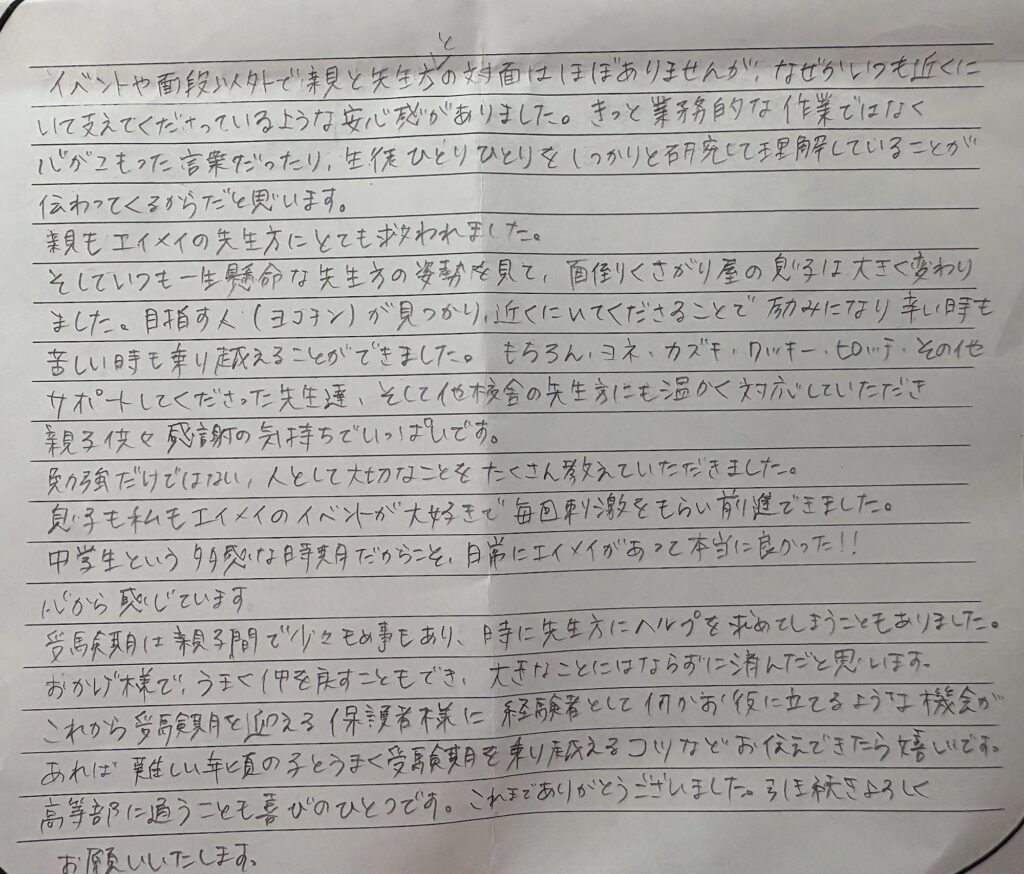 イベントや面段以外で親と先生方との対面はほぼありませんが、なぜかいつも近くに
いて支えてくださっているような安心感がありました。きっと業務的な作業ではなく
心がこもった言葉だったり、生徒ひとりひとりをしっかりと研究して理解していることが
伝わってくるからだと思います。
親もエイメイの先生方にとても救われました。
そしていつも一生懸命な先生方の姿勢を見て、面倒くさがり屋の息子は大きく変わり
ました。目指す人(ヨコチン)が見つかり、近くにいてくださることで励みになり辛い時も
苦しい時も乗り越えることができました。もちろん・ヨネ・カズキ・ワッキー・ヒロッチ・その他
サポートしてくださった先生達、そして他校舎の先生方にも温かく対応していただき
親子供々感謝の気持ちでいっぱいです。
勉強だけではない、人として大切なことをたくさん教えていただきました。
息子も私もエイメイのイベントが大好きで毎回刺激をもらい前進できました。
中学生という多感な時期だからこそ、日常にエイメイがあって本当に良かった!!
心から感じています
受験期は親子間で少々もめ事もあり、時に先生方にヘルプを求めてしまうこともありました。
おかげ様で、うまく仲を戻すこともでき、大きなことにはならずに済んだと思います。
これから受験期を迎える保護者様に経験者として何かお役に立てるような機会が
あれば難しい年頃の子とうまく受験期を乗り越えるコツなどお伝えできたら嬉しいです。
高等部に通うことも喜びのひとつです。これまでありがとうございました。引き続きよろしく
お願いいたします。